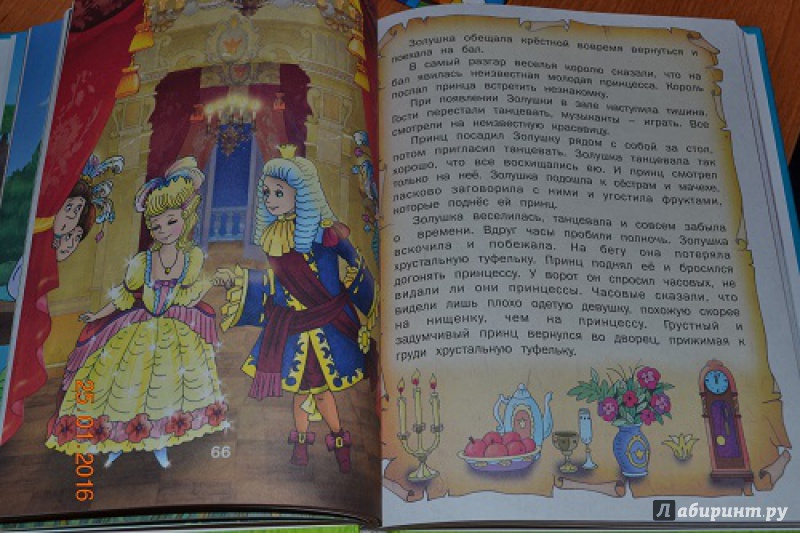 Золушка обещала крёстной вовремя вернуться и
поехала на бал.
В самый разгар веселья королю сказали, что на
бал явилась неизвестная молодая принцесса. Король
послал принца встретить незнакомку.
При появлении Золушки в зале наступила тишина.
Гости перестали танцевать, музыканты – играть. Все
смотрели на неизвестную красавицу.
Принц посадил Золушку рядом с собой за стол,
потом пригласил танцевать. Золушка танцевала так
хорошо, что все восхищались ею. И принц смотрел
только на неё. Золушка подошла к сёстрам и мачехе,
ласково заговорила с ними и угостила фруктами,
которые поднёс ей принц.
Золушка веселилась, танцевала и совсем забыла
о времени. Вдруг часы пробили полночь. Золушка
вскочила и побежала. На бегу она потеряла
хрустальную туфельку. Принц поднял её и бросился
догонять принцессу. У ворот он спросил часовых, не
видали ли они принцессы. Часовые сказали, что
видели лишь плохо одетую девушку, похожую скорее
на нищенку, чем на принцессу. Грустный и
задумчивый принц вернулся во дворец, прижимая к
груди хрустальную туфельку.
66
25 01 2016
Лабиринт.ру